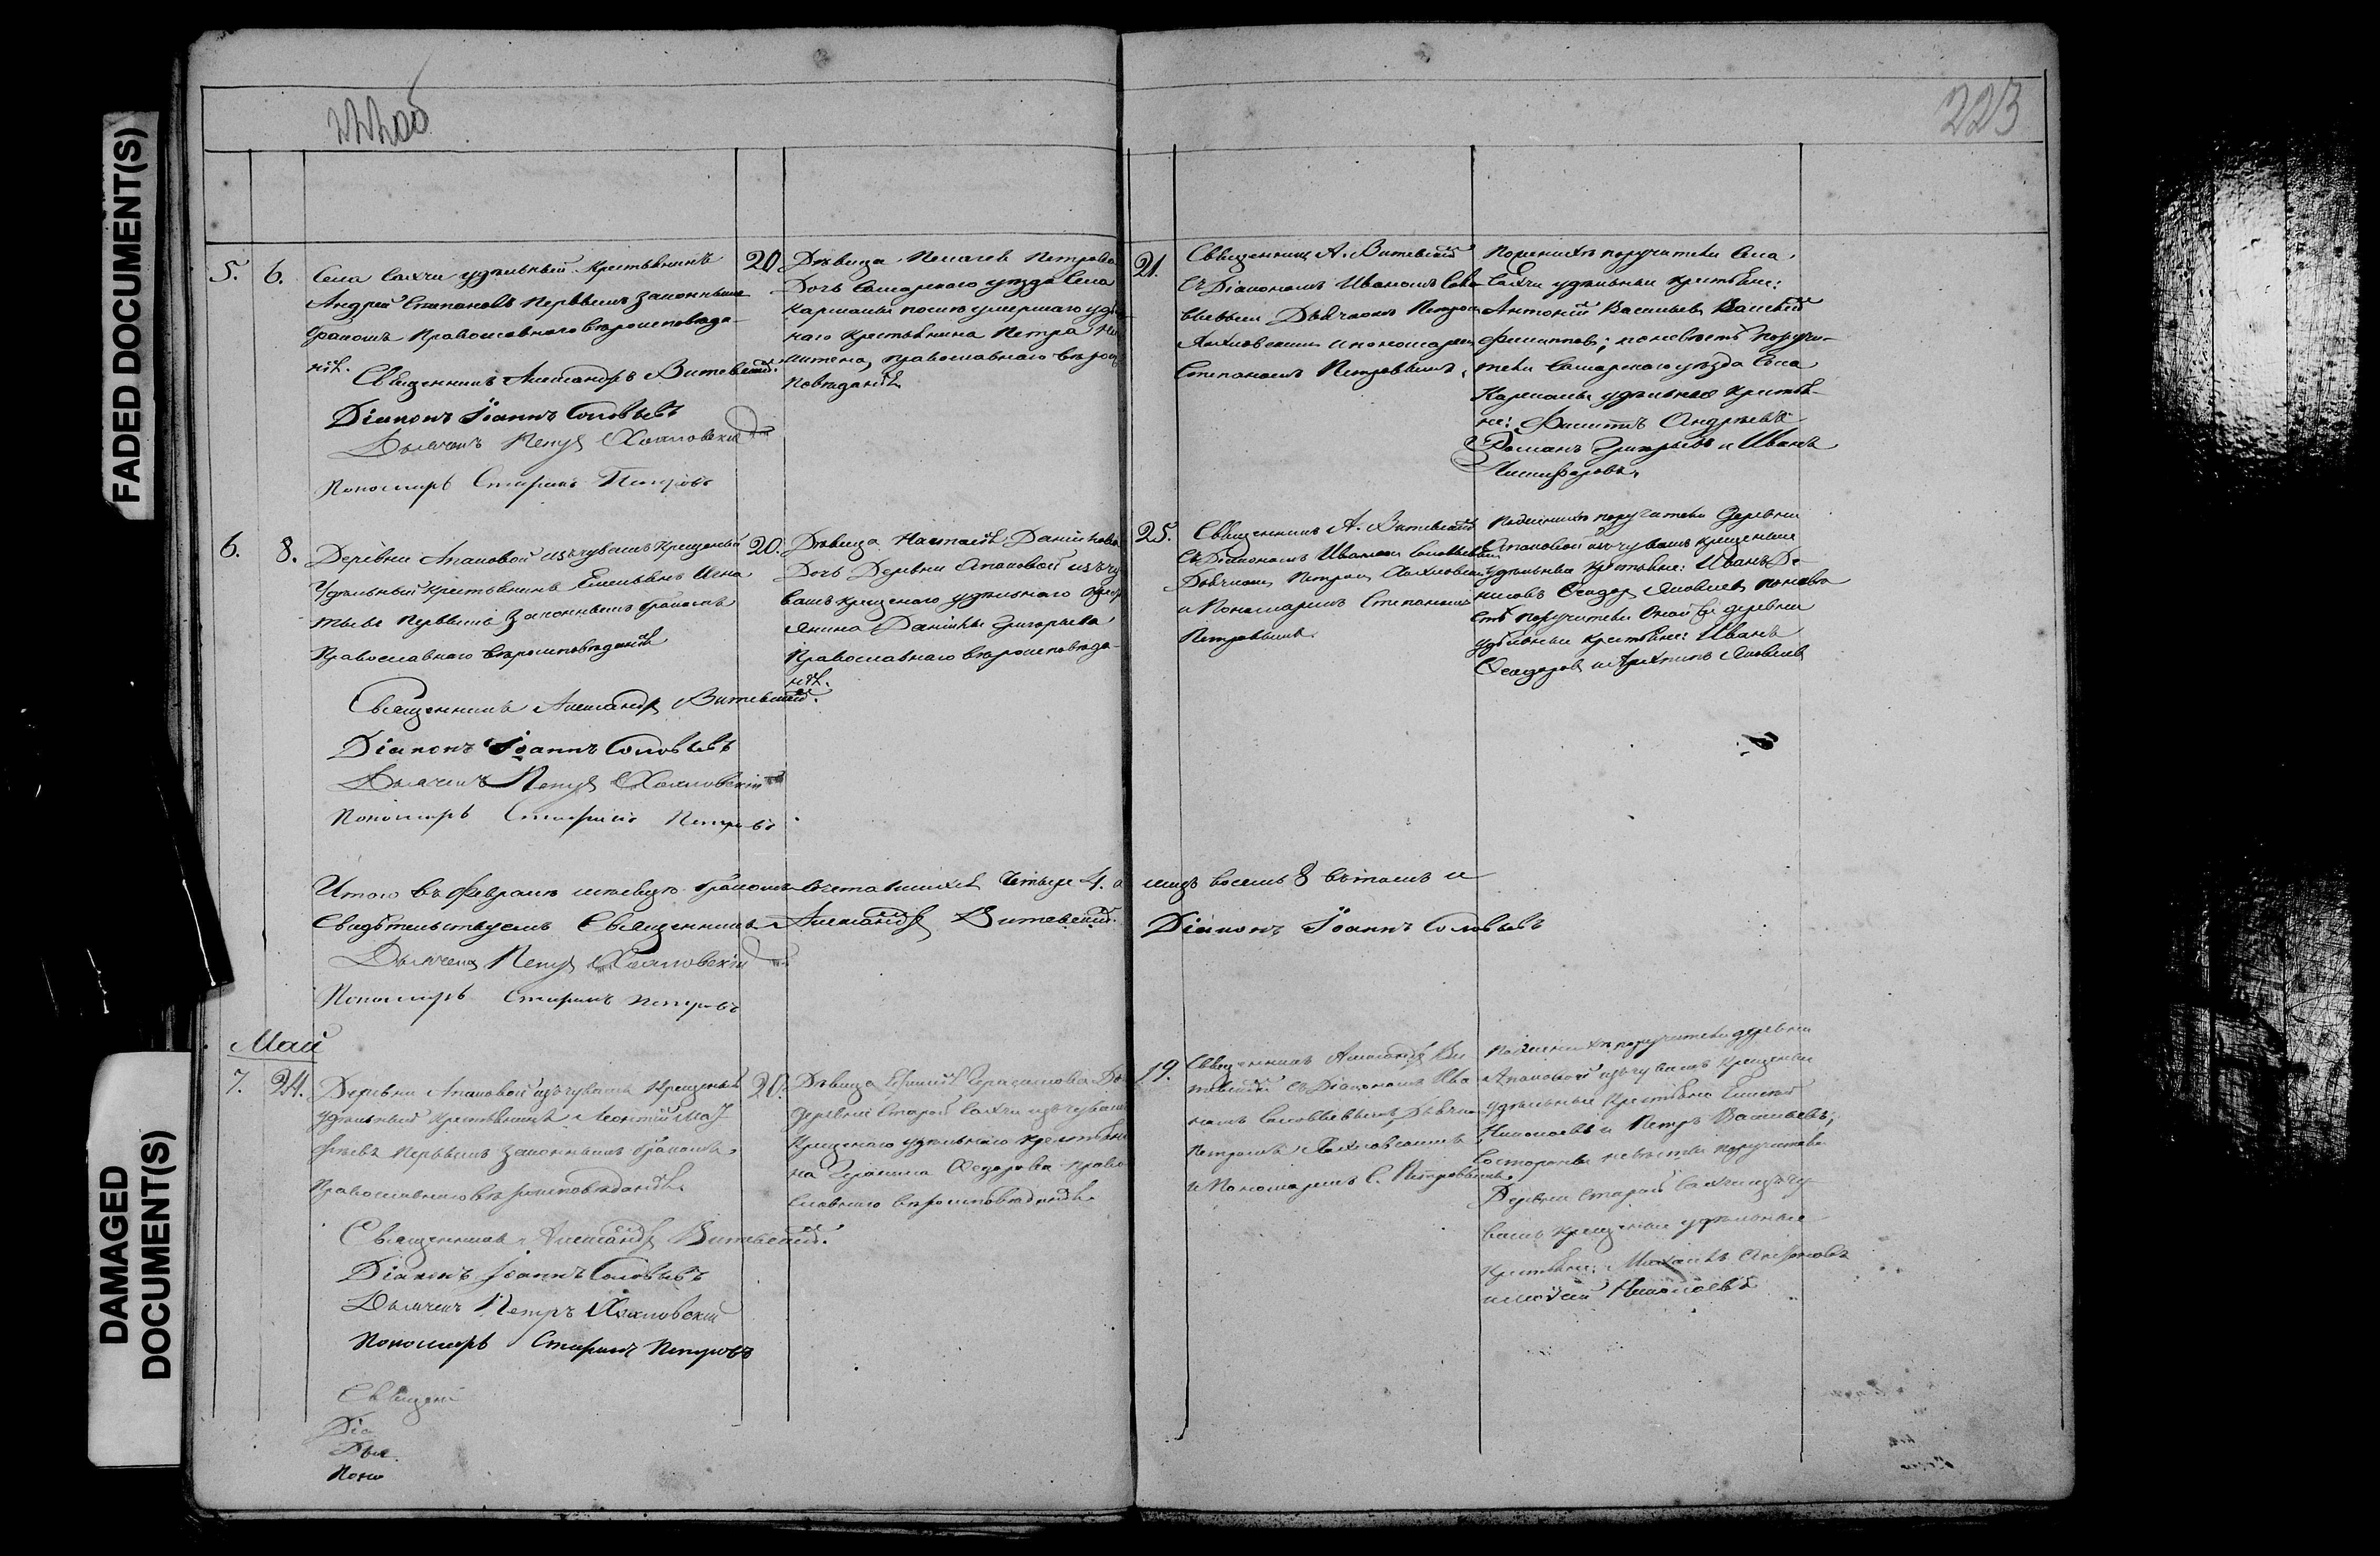 FADED DOCUMENT(S)
DAMAGED
DOCUMENT(S)
222об
223
5. 6.
Села Салхи удѣльный крестьянинъ
Андрей Степановъ первымъ законнымъ
бракомъ Православнаго вѣроисповѣда-
нія.
Священникъ Александръ Витевскій.
Діаконъ Іоаннъ Соловьевъ
Дьячекъ Петръ Охотловскій
Пономарь Стефанъ Петровъ
20
Дѣвица Пелагея Петрова
Дочь Самарскаго уѣзда Села
Кармалы послѣ умершаго удѣ
наго крестьянина Петра
православнаго вѣрои
повѣданія
21.
Священникъ А. Витевскій
съ Діакономъ Иваномъ Соло-
вьевымъ Дьячкомъ Петромъ
и пономаремъ
Степаномъ Петровымъ.
По женихѣ поручители Села
удѣльные крестьяне:
Антоній Васильевъ Василій
Филипповъ; по невѣстѣ поручи-
тели Самарскаго уѣзда Села
Кармалы удѣльные крестья-
не: Филиппъ Андреевъ
Романъ Григорьевъ и Иванъ
Никифоровъ.
6. 8.
Деревни Апаковой изъ чувашъ крещеный
Удѣльный крестьянинъ Емельянъ Игна
тьевъ первымъ законнымъ бракомъ
Православнаго вѣроисповѣданія
Священникъ Александръ Витевскій.
Діаконъ Іоаннъ Соловьевъ
Дьячекъ Петръ
Пономарь Стефанъ Петровъ
20.
Дѣвица Настасія Данилова
Дочь Деревни Апаковой изъ чу
вашъ крещенаго удѣльнаго крес
янина Данилы Григорьева
Православнаго вѣроисповѣда-
нія.
25.
Священникъ А. Витевскій
съ Діакономъ Иваномъ Соловьевымъ
Дьячкомъ Петромъ
и Пономаремъ Степаномъ
Петровымъ.
По женихѣ поручители Деревни
Апаковой изъ чувашъ крещеные
Удѣльные крестьяне: Иванъ Де-
нисовъ Ѳедоръ Яковлевъ по невѣ
стѣ поручители Оной же деревни
удѣльные крестьяне: Иванъ
Ѳедоровъ и Яковлевъ
Итого въ Февралѣ мѣсяцѣ бракомъ сочетавшихся четыре 4. а лицъ восемь 8 въ томъ и
Свидѣтельствуемъ Священникъ Александръ Витевскій. Діаконъ Іоаннъ Соловьевъ
Дьячекъ Петръ
Пономарь Стефанъ Петровъ
Май
7. 24.
Деревни Апаковой изъ чувашъ крещеный
удѣльный крестьянинъ Леонтій Мат
фѣевъ первымъ законнымъ бракомъ
Православнаго вѣроисповѣданія
Священникъ Александръ Витевскій.
Діаконъ Іоаннъ Соловьевъ
Дьячекъ Петръ
Пономарь Стефанъ Петровъ
20.
Дѣвица Герасимова До
деревни Старой Салхи изъ чувашъ
крещенаго удѣльнаго крестьяни
на Герасима Ѳедорова право
славнаго вѣроисповѣданія
19.
Священникъ Александръ Ви
тевскій съ Діакономъ Ива
номъ Соловьевымъ, Дьячко
Петромъ
и Пономаремъ С. Петровымъ
По женихѣ поручители деревни
Апаковой изъ чувашъ крещеные
удѣльные крестьяне
Николаевъ и Петръ Васильевъ;
Со стороны невѣсты поручители
Деревни Старой Салхи изъ чу-
вашъ крещеные удѣльные
крестьяне:
Николаевъ
Священ
Діа
Дья
Поно